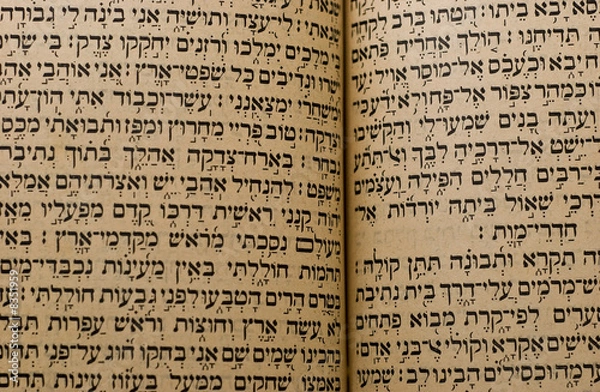 יָבֹא בֵיתוֹ׃ הִטַּתּוּ בְּרֹב
תַּדִּיחֶנּוּ׃ הוֹלֵךְ אַחֲרֶיהָ פִּתְאֹם
יָבֹא וּכְעֶכֶס אֶל־מוּסַר אֱוִיל׃ עַד
כְּמַהֵר צִפּוֹר אֶל־פָּח וְלֹא־יָדַע כִּי־
וְעַתָּה בָנִים שִׁמְעוּ־לִי וְהַקְשִׁיבוּ
יֵשְׂטְ אֶל־דְּרָכֶיהָ לִבֶּךָ וְאַל־תֵּתַע
רַבִּים חֲלָלִים הִפִּילָה וַעֲצֻמִים
דַּרְכֵי שְׁאוֹל בֵּיתָהּ יוֹרְדוֹת אֶל־
חַדְרֵי־מָוֶת ׃
תִקְרָא וּתְבוּנָה תִּתֵּן קוֹלָהּ׃
מְרֹמִים עֲלֵי־דָרֶךְ בֵּית נְתִיבֹת
לְפִי־קָרֶת מְבוֹא פְתָחִים
אִישִׁים אֶקְרָא וְקוֹלִי אֶל־בְּנֵי אָדָם׃
וּכְסִילִים הָבִינוּ לֵב׃ שִׁמְעוּ
שָׂנֵאתִי׃ לִי־עֵצָה וְתוּשִׁיָּה אֲנִי בִינָה לִי
מְלָכִים יִמְלֹכוּ וְרֹזְנִים יְחֹקְקוּ צֶדֶק׃ בִּי
וּנְדִיבִים כָּל שֹׁפְטֵי־אָרֶץ׃ אֲנִי אוֹהֲבַי
יִמְצָאֻנְנִי׃ עֹשֶׁר־וְכָבוֹד אִתִּי הוֹן
וּצְדָקָה׃ טוֹב פִּרְיִי מֵחָרוּץ וּמִפָּז וּתְבוּאָתִי
נִבְחָר׃ בְּאֹרַח־צְדָקָה אֲהַלֵּךְ בְּתוֹךְ
מִשְׁפָּט׃ לְהַנְחִיל אֹהֲבַי יֵשׁ וְאֹצְרֹתֵיהֶם אֲמַלֵּא
יְהוָה קָנָנִי רֵאשִׁית דַּרְכּוֹ קֶדֶם מִפְעָלָיו מֵאָז
מֵעוֹלָם נִסַּכְתִּי מֵרֹאשׁ מִקַּדְמֵי־אָרֶץ׃
תְּהֹמוֹת חוֹלָלְתִּי בְּאֵין מַעְיָנוֹת נִכְבַּדֵּי־מָיִם
בְּטֶרֶם הָרִים הָטְבָּעוּ לִפְנֵי גְבָעוֹת חוֹלָלְתִּי׃
לֹא עָשָׂה אֶרֶץ וְחוּצוֹת וְרֹאשׁ עַפְרוֹת
בַּהֲכִינוֹ שָׁמַיִם שָׁם אָנִי בְּחֻקוֹ חוּג עַל־פְּנֵי
בְּאַמְּצוֹ שְׁחָקִים מִמָּעַל בַּעֲזוֹז עִינוֹת